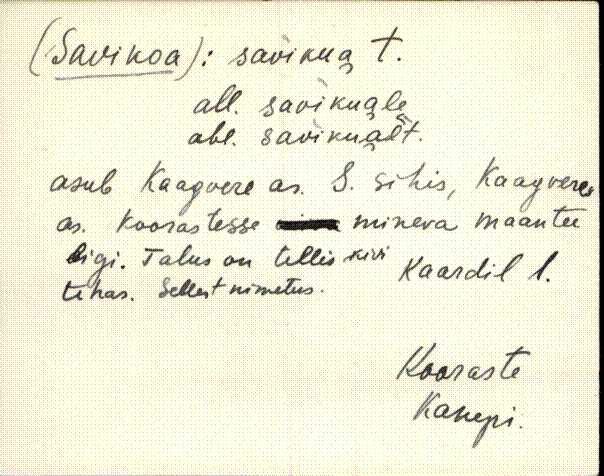 (Savikoa): savìkuą t.
all. savìkuąle
abl. savìkuąlt.
asub Kaagvere as. S. sihis, Kaagvere
as. Koorastesse mineva maantee
ligi. Talus on tellis kivi
tehas. Sellest nimetus. Kaardil 1.
Kooraste
Kanepi.